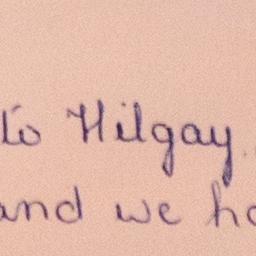 to Hilgay.
and we ha